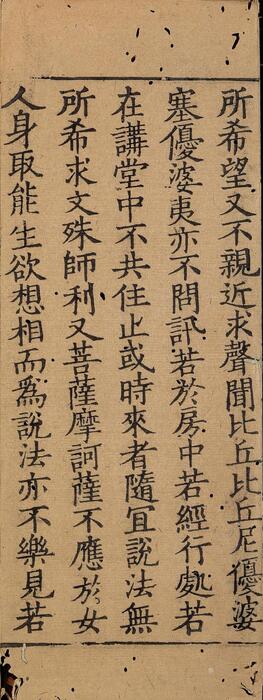 所希望又不親近求聲聞比丘比丘尼優婆
塞優婆夷亦不問訊若於房中若經行處若
在講堂中不共住止或時來者隨冝說法無
所希求文殊師利又菩薩摩訶薩不應於女
人身取能生欲想相而為說法亦不樂見若